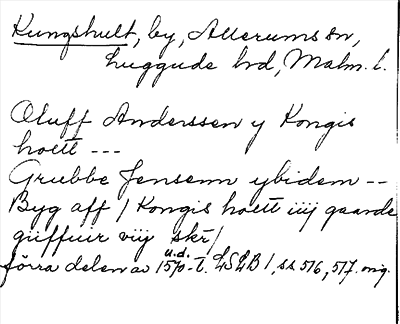 Kungshult, by, Allerums sn,
Luggude hd, Malm. l.
Oluff Anderssen y Kongis
hoett ---
Grubbe Jensenn ybidem --
Byg aff / Kongis hoett iiij gaarde
giiffuir viij skr/
u.d.
förra delen av 1570-t. LSLB 1, ss 516, 517. orig.